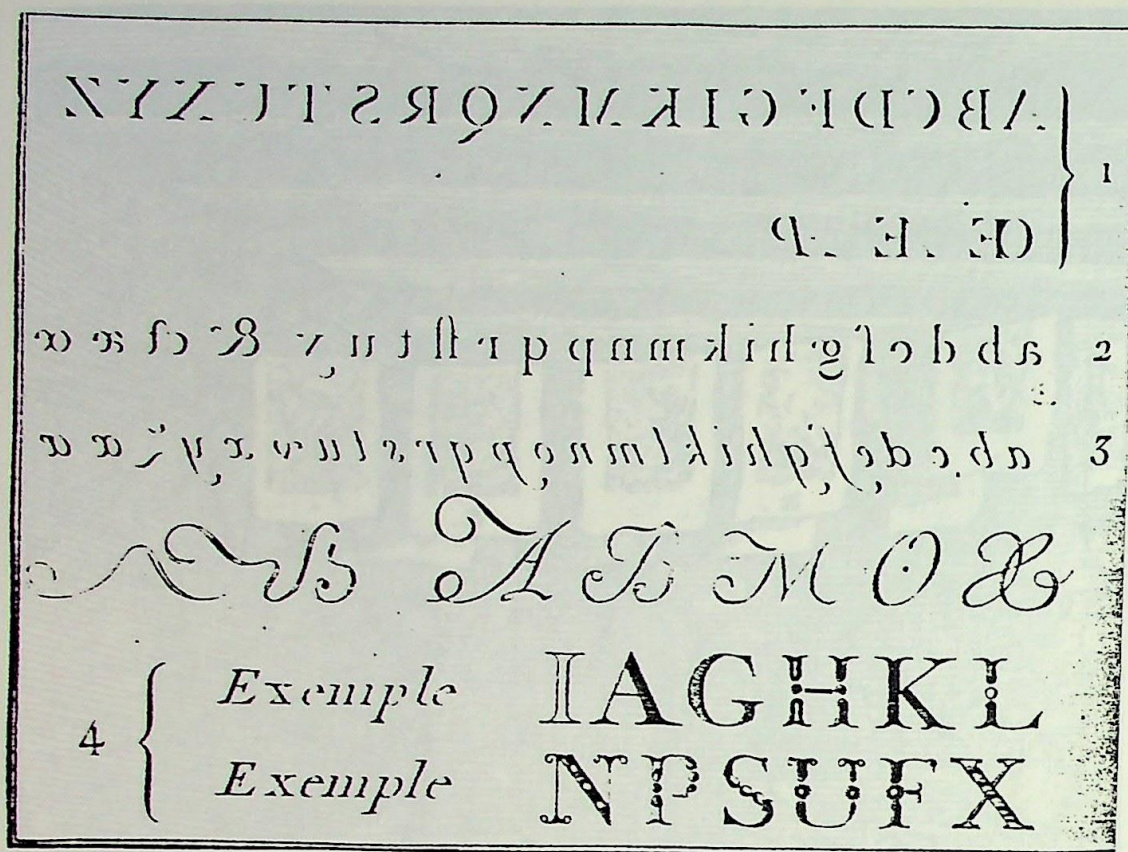 A B C D F G I K M N Q R S T U X Y Z
1
Œ E P
a b d c f g h i k m n p q r fl t u v & ct æ œ 2
a b c d e f g h i k l m n o p q r s t u v x y z æ œ 3
B A B M O &
4
Exemple I A G H K L
Exemple N P S U F X